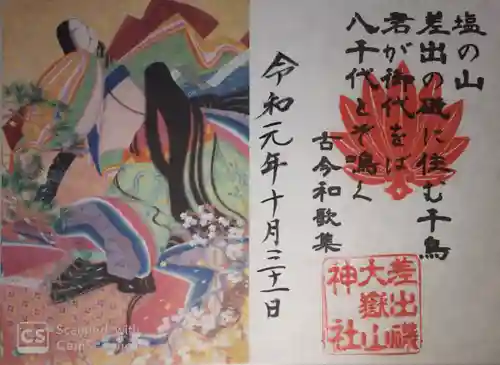 塩の山
差出の磯に住む千鳥
君が御代をば
八千代とぞ鳴く
古今和歌集
令和元年十月三十一日
差出磯
大嶽山
神社
CS
Scanned with
CamScanner